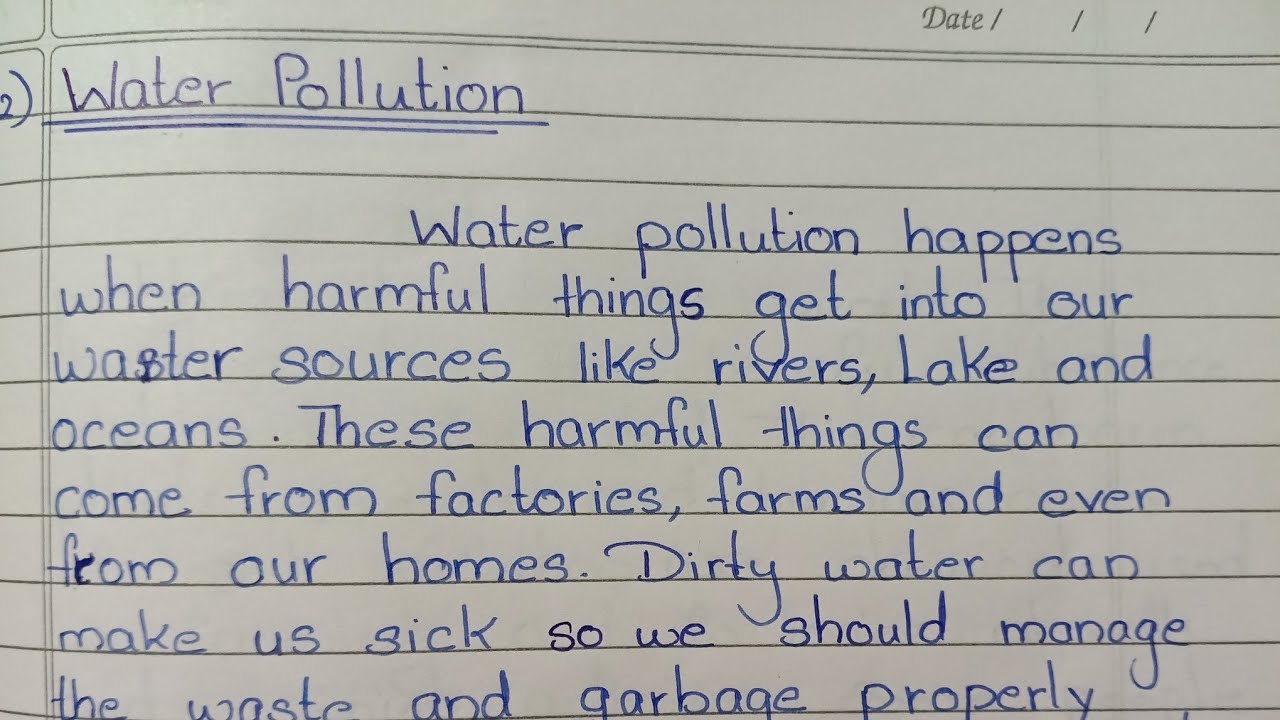 Date / / /
2) Water Pollution
Water pollution happens
when harmful things get into our
waster sources like rivers, Lake and
oceans. These harmful things can
come from factories, farms and even
from our homes. Dirty water can
make us sick so we should manage
the waste and garbage properly